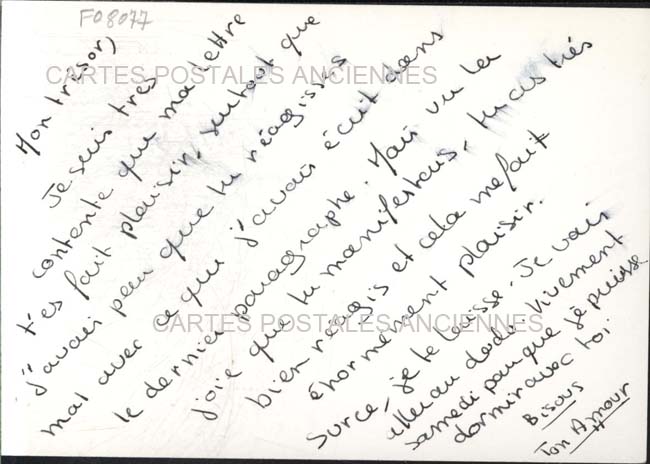 F08077
CARTES POSTALES ANCIENNES
Mon trésor,
Je suis très
contente que ma lettre
t'es fait plaisir, surtout que
j'avais peur que tu réagisses
mal avec ce que j'avais écrit dans
le dernier paragraphe. Mais vu la
joie que tu manifestais, tu as très
bien réagis et cela me fait
énormément plaisir.
Sur ce, je te laisse. Je vais
aller au dodo. Vivement
samedi pour que je puisse
dormir avec toi.
Bisous
Ton Amour
CARTES POSTALES ANCIENNES